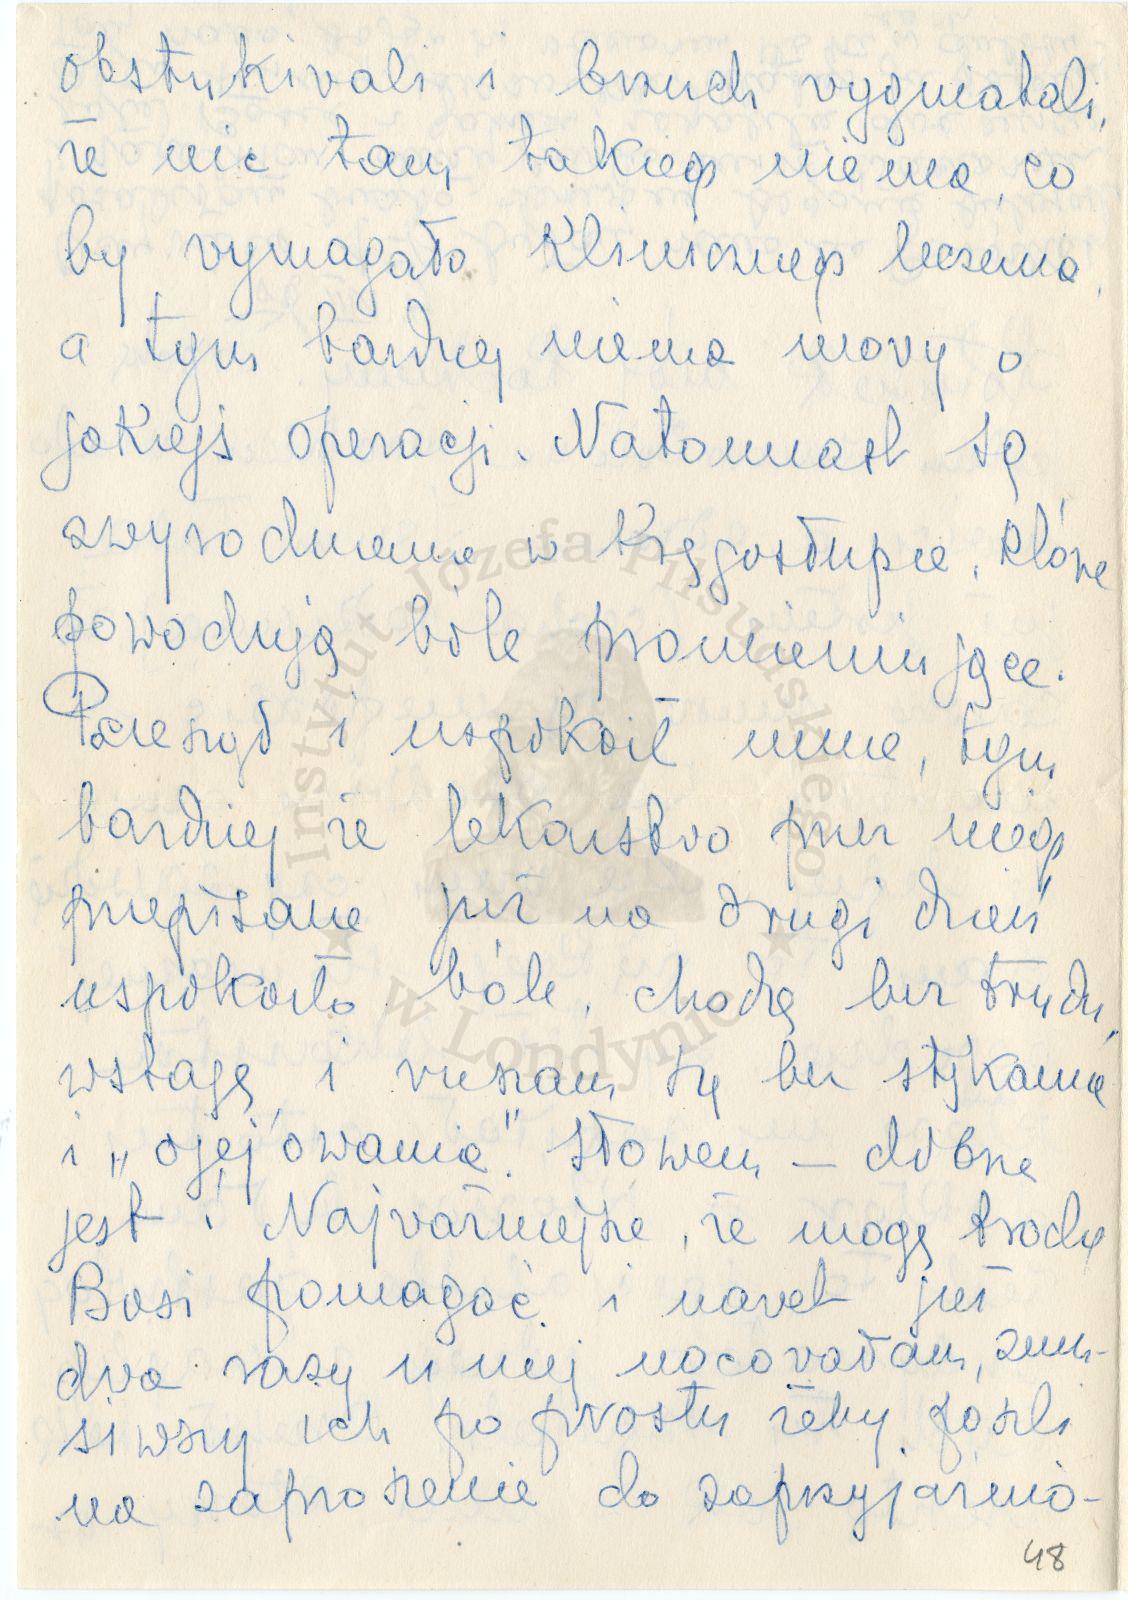 obstukivali i brzuch vygniatali,
że nic tam takiego niema, co
by vymagało klinicznego leczenia,
a tym bardziej niema movy o
jakiejś operacji. Natomiast są
zwyrodnienia w kręgosłupie, które
powodują bóle promieniujące.
Pocieszył i uspokoił mnie, tym
bardziej że lekarstvo przez niego
przepisane już na drugi dzień
uspokoiło bóle, chodzę bez trudu,
wstaję i ruszam się bez stękania
i „ojej'owania". Słowem — dobrze
jest! Najvażniejsze, że mogę trochę
Basi pomagać i navet już
dva razy u niej nocovałam, zmu-
siwszy ich po prostu żeby poszli
na zaproszenie do zaprzyjaźnio-
48
Instytut Józefa Piłsudskiego
w Londynie